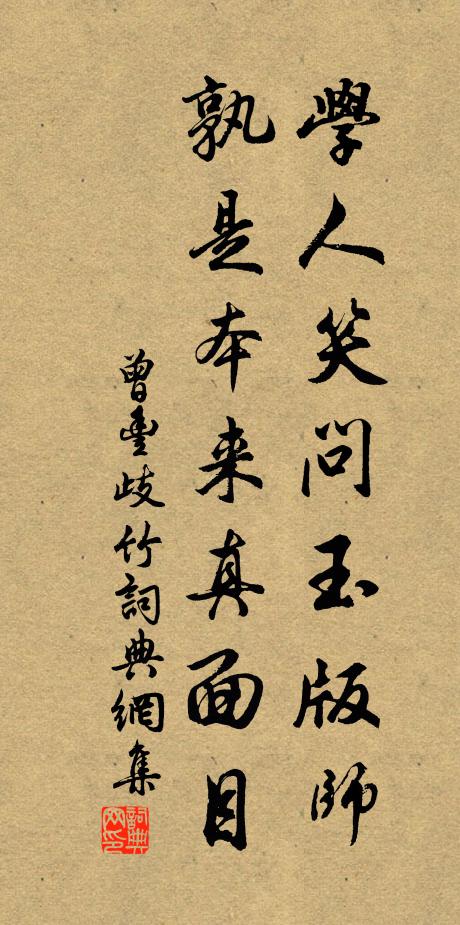 學人笑問玉版師
孰是本来真面目
曾豐歧竹詞典網集
詞典網印